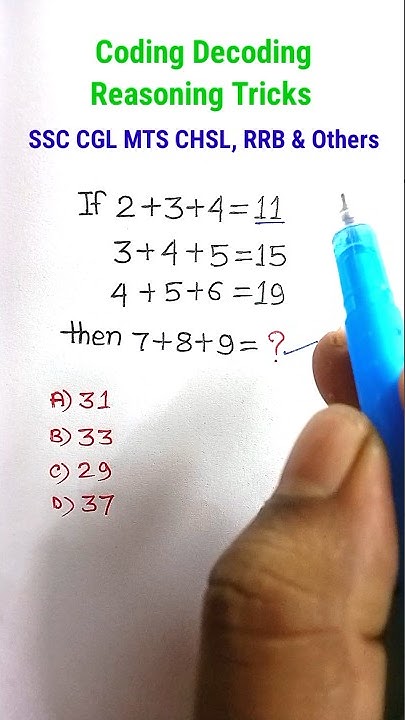 Coding Decoding
Reasoning Tricks
SSC CGL MTS CHSL, RRB & Others
If 2+3+4=11
3+4+5=15
4+5+6=19
then 7+8+9=?
A) 31
B) 33
C) 29
D) 37